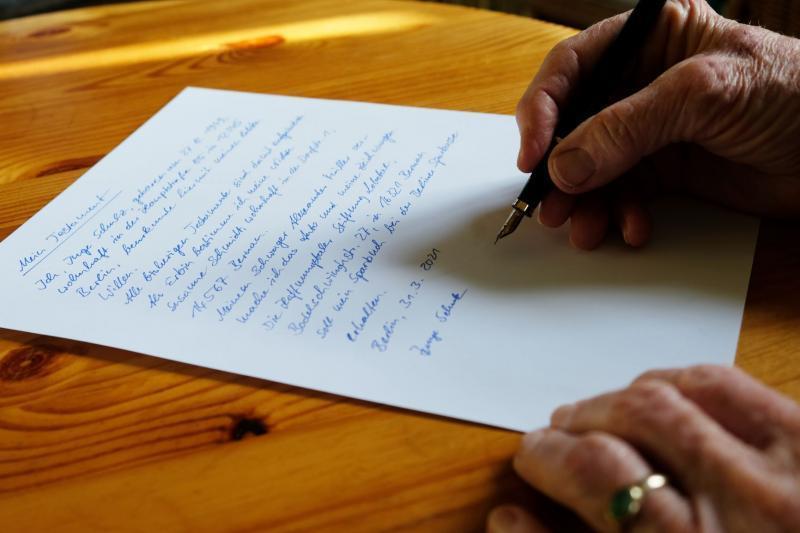 Mein Testament
Ich, Inge Schulz, geboren am 1939,
wohnhaft in der Hauptstraße 115 in 12345
Berlin, beurkunde hiermit meinen letzten
Willen.
Alle bisherigen Testamente sind damit aufgehoben.
Als Erbin bestimme ich meine Nichte
Susanne Schmidt, wohnhaft in der 1,
14567 Bremen.
Meinem Schwager Alexander Müller ver-
mache ich das Auto und meine
Die Stiftung
27 in 12021 Bremen
soll mein Sparbuch bei der Berliner Sparkasse
erhalten.
Berlin, 31.3.2021
Inge Schulz